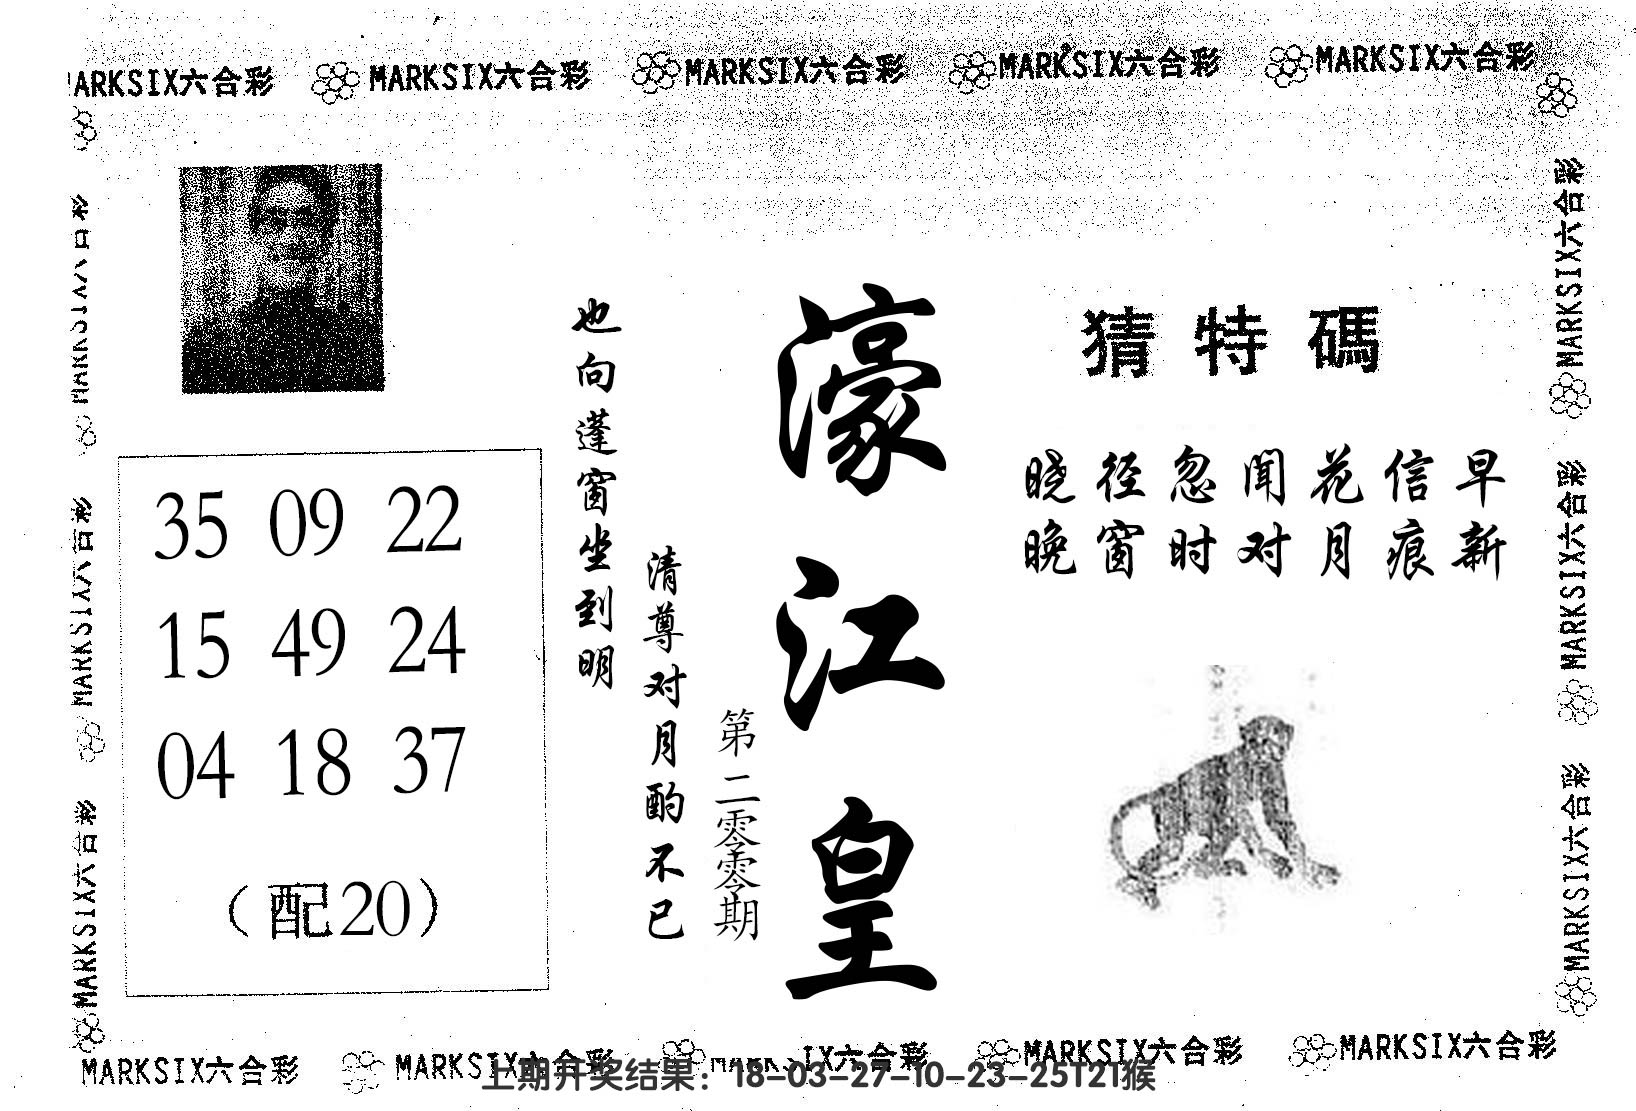 MARKSIX六合彩 MARKSIX六合彩 MARKSIX六合彩 MARKSIX六合彩 MARKSIX六合彩
猜特碼
晓径忽闻花信早
晚窗时对月痕新
濠江皇
第二零零期
清尊对月酌不已
也向蓬窗坐到明
35 09 22
15 49 24
04 18 37
（配20）
MARKSIX六合彩
MARKSIX六合彩
MARKSIX六合彩
MARKSIX六合彩
MARKSIX六合彩
MARKSIX六合彩
MARKSIX六合彩 MARKSIX六合彩 MARKSIX六合彩 MARKSIX六合彩 MARKSIX六合彩
上期开奖结果：18-03-27-10-23-25T21猴